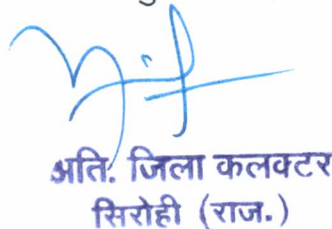 अति. जिला कलक्टर
सिरोही (राज.)